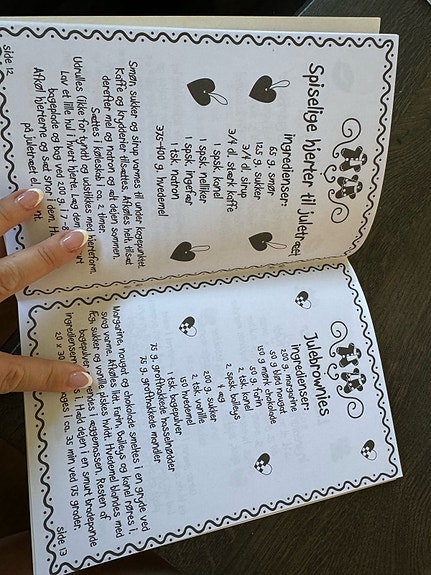 Spiselige hjerter til juletræet
ingredienser:
65 g. smør
125 g. sukker
3/4 dl. sirup
3/4 dl. stærk kaffe
1 spsk. kanel
1 spsk. nelliker
1 spsk. ingefær
1 tsk. natron
375-400 g. hvedemel
Smør, sukker og sirup varmes til under kogepunktet.
Kaffe og krydderier tilsættes. Afkøles helt, tilsæt
derefter mel og natron og ælt dejen sammen.
Sættes i køleskab i ca. 2 timer.
Udrulles (ikke for tyndt) og udstikkes med hjerteform.
Lav et lille hul i hvert hjerte. Læg dem
bageplade og bag ved 200 g. i 7-8
Afkøl hjerterne og sæt snor i dem. H
på juletræet el
side 12
Julebrownies
ingredienser:
200 g. margarine
50 g blød nougat
150 g mørk chokolade
50 g. farin
2 tsk. kanel
2 spsk. baileys
4 æg
200 g. sukker
2 tsk. vanille
hvedemel
1 tsk. bagepulver
75 g. grofthakkede hasselnødder
75 g. grofthakkede mandler
Margarine, nougat og chokolade smeltes i en gryde ved
svag varme. Afkøles lidt. Farin, baileys og kanel røres i.
Æg, sukker og vanille piskes hvidt. Hvedemel blandes med
bagepulver vendes i æggemassen. Resten af
ingredienser s i. Hæld dejen i en smurt bradepande
20 x 30 ages i ca. 35 min ved 175 grader.
side 13